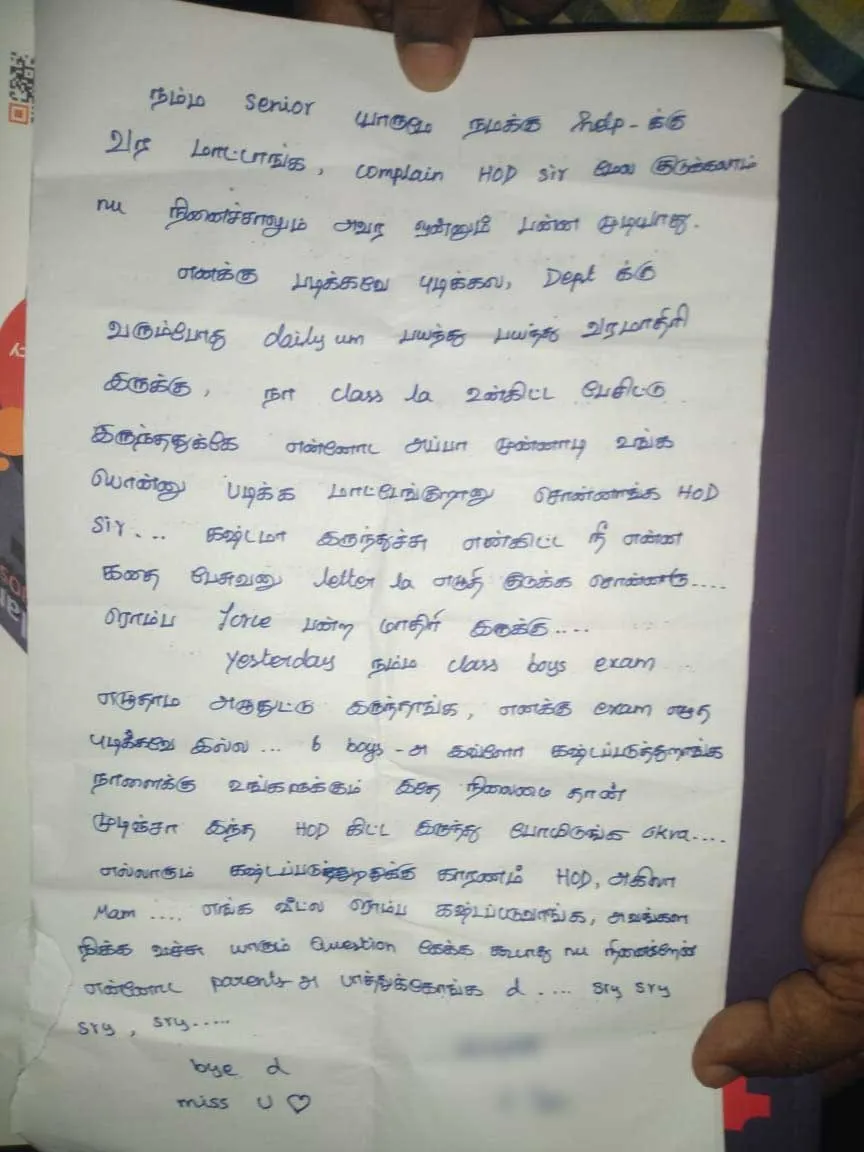 நம்ம senior யாருமே நமக்கு help-க்கு
வர மாட்டாங்க, complain HOD sir மேல குடுக்கலாம்
nu நினைச்சாலும் அவர ஒன்னும் பன்ன முடியாது.
எனக்கு படிக்கவே புடிக்கல, Dept க்கு
வரும்போது daily um பயந்து பயந்து வரமாதிரி
இருக்கு, நா class la உன்கிட்ட பேசிட்டு
இருந்ததுக்கே என்னோட அப்பா முன்னாடி உங்க
பொன்னு படிக்க மாட்டேங்குறானு சொன்னாங்க HOD
Sir... கஷ்டமா இருந்துச்சு என்கிட்ட நீ என்ன
கதை பேசுவனு letter la எழுதி குடுக்க சொன்னாரு....
ரொம்ப force பன்ற மாதிரி இருக்கு....
yesterday நம்ம class boys exam
எழுதாம அழுதுட்டு இருந்தாங்க, எனக்கு exam எழுத
புடிக்கவே இல்ல... 6 boys-அ இவ்ளோ கஷ்டப்படுத்துறாங்க
நாளைக்கு உங்களுக்கும் இதே நிலைமை தான்
முடிஞ்சா இந்த HOD கிட்ட இருந்து போயிடுங்க okva....
எல்லாரும் கஷ்டப்படுத்துறதுக்கு காரணம் HOD, அகிலா
Mam .... எங்க வீட்ல ரொம்ப கஷ்டப்படுவாங்க, அவங்கள
நிக்க வச்சு யாரும் Question கேக்க கூடாது nu நினைக்றேன்
என்னோட parents அ பாத்துக்கோங்க d .... sry sry
sry, sry.....
bye d
miss U ♡